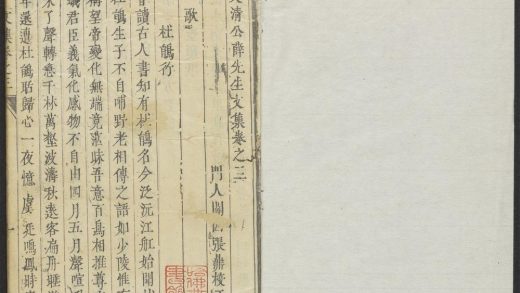 清公薛先生文集卷之三
門人關西張鼎校
歌
杜鵑行
讀古人書知有杜鵑名今泛沅江舡始聞
鵑生子不自哺野老相傳之語如少陵惟
稱望帝變化無端竟茲昧吾意百鳥相推尊
君臣義氣化感物不自由四月五月聲喧
未了聲轉悲千林萬壑波濤秋遠客扁舟
年還遠杜鵑詀歸心一夜憶虞廷鳴鳳時
文集卷之三 一